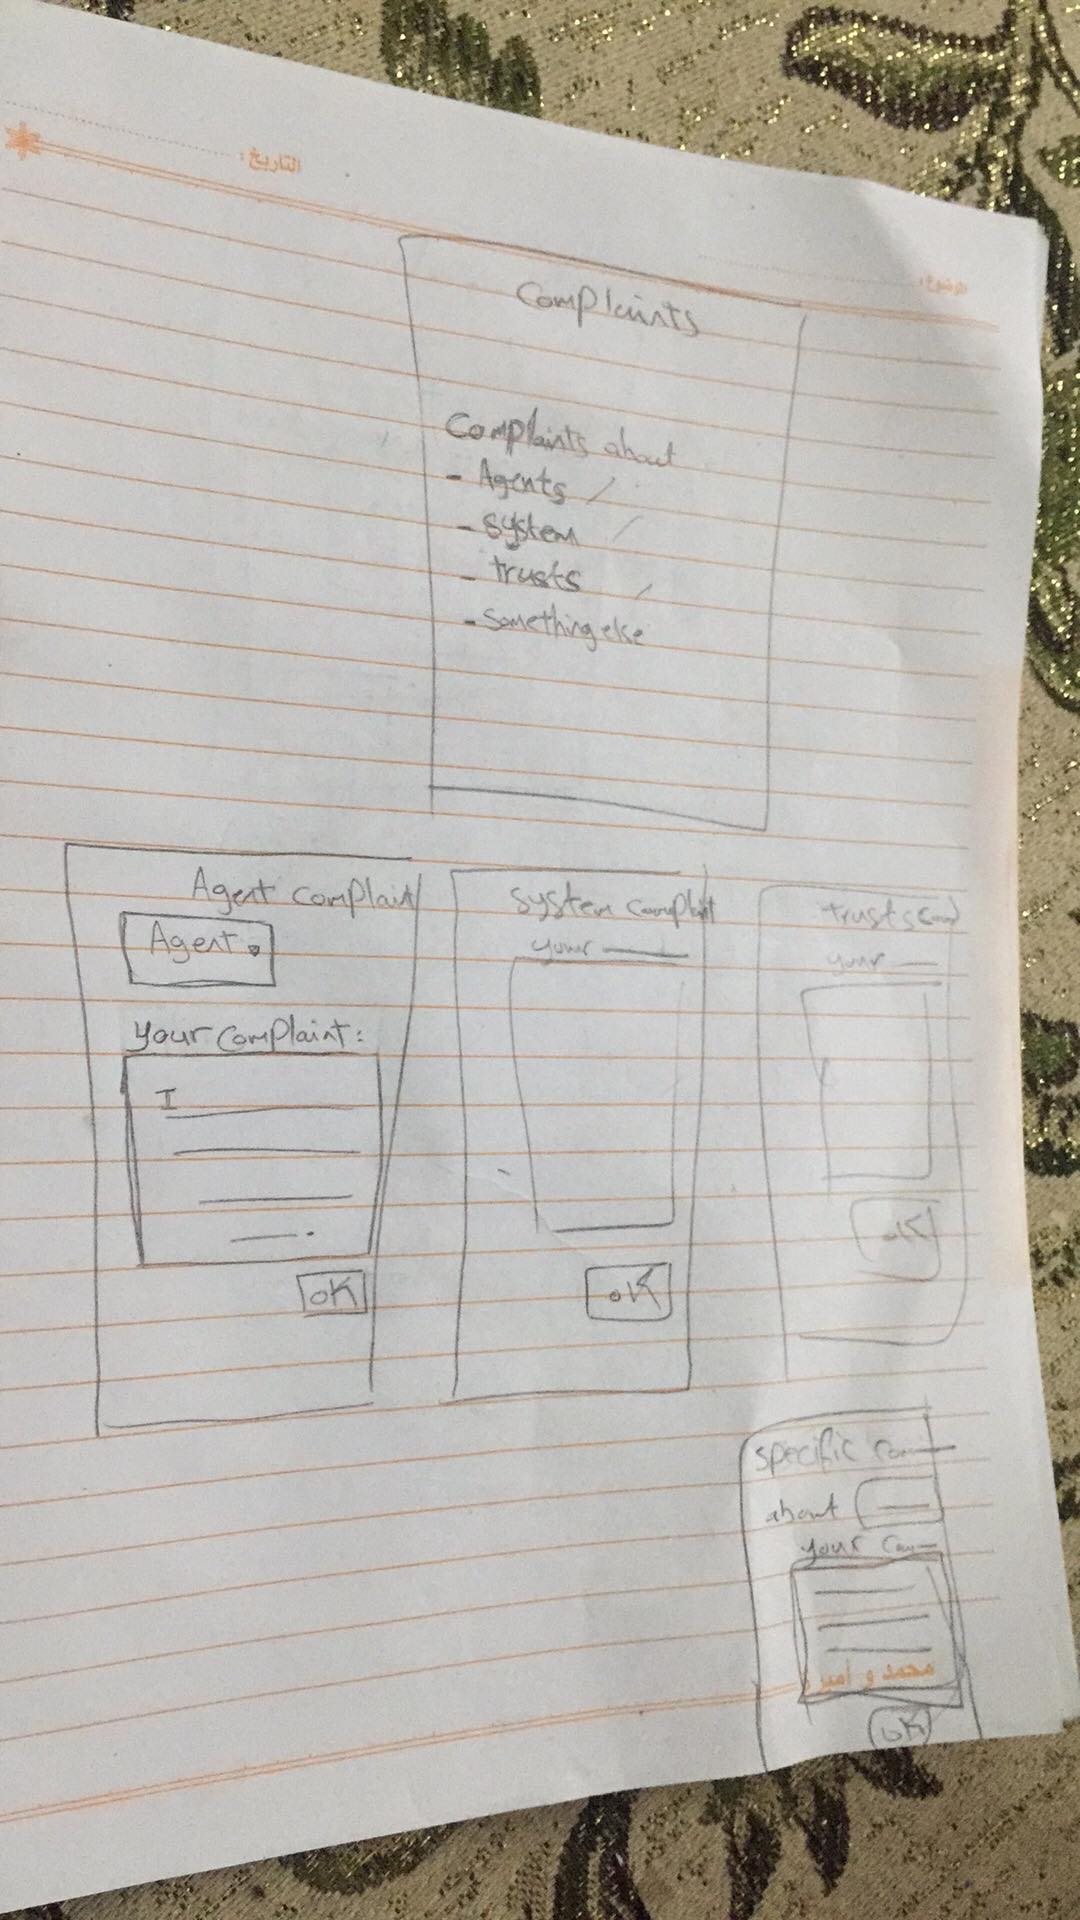 التاريخ:
الموضوع:
Complaints
Complaints about
- Agents
- System
- trusts
- Something else
Agent complaint
Agent
your complaint:
I
OK
System complaint
your
OK
trusts
your
OK
specific
about
your
محمد و أمير
OK